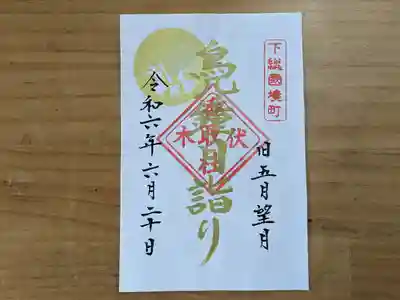 下総國境町
旧五月望月
月詣り
伏木
香取社
令和六年六月二十日